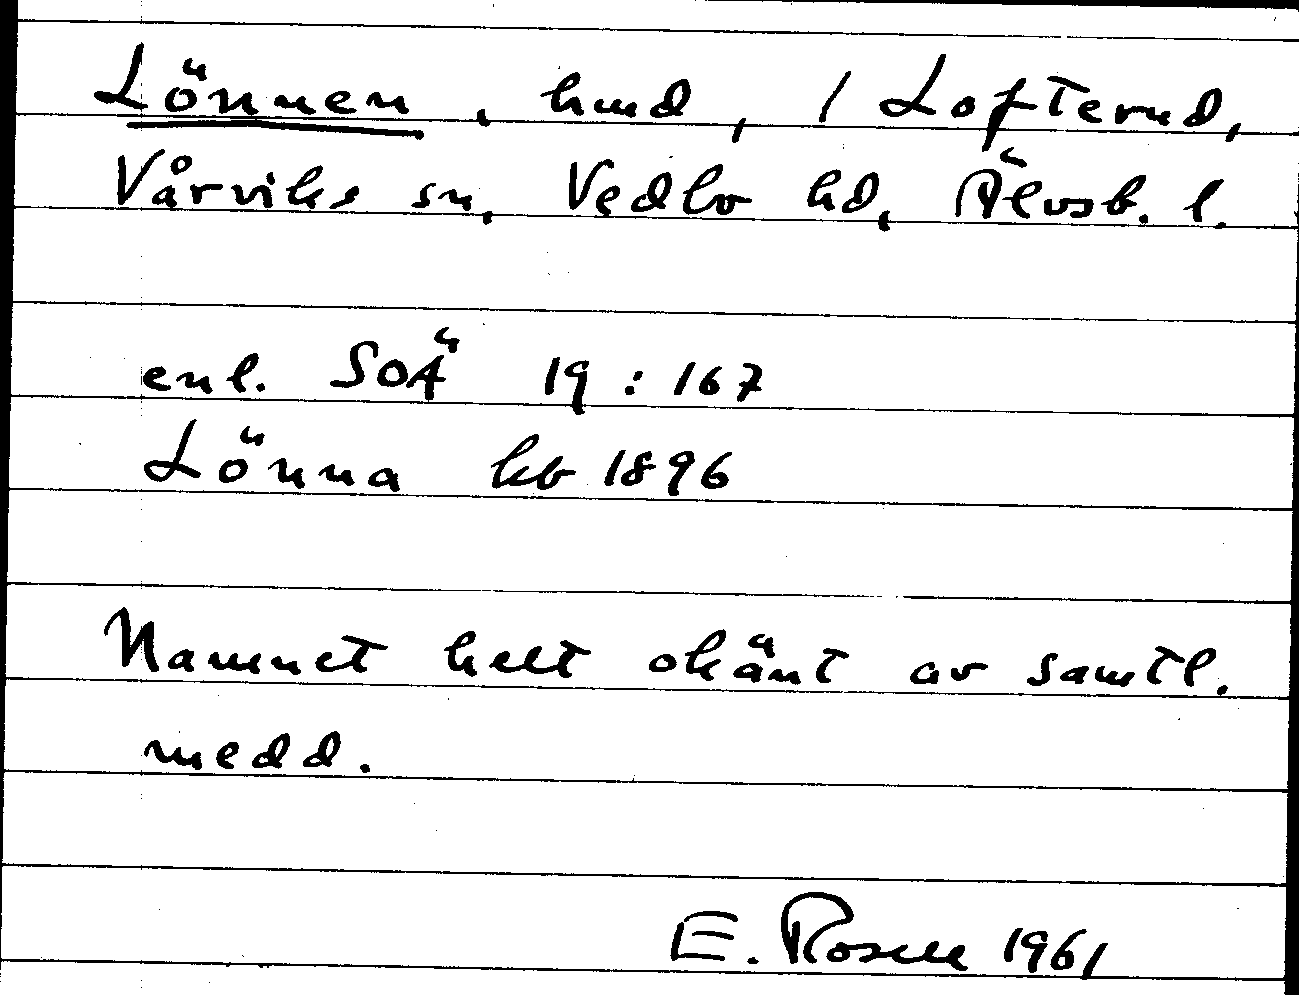 Lönnen, hmd, / Lofterud,
Vårviks sn, Vedbo hd, Älvsb. l.
enl. SOÄ 19 : 167
Lönna kb 1896
Namnet helt okänt av samtl.
medd.
E. Rosell 1961